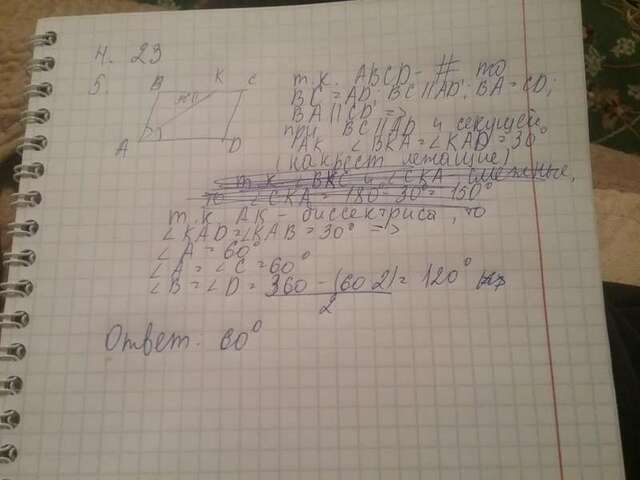 4. 23
5.
B K C
30
A D
т.к. ABCD - # то
BC = AD; BC || AD; BA = CD;
BA || CD; =>
при BC || AD и секущей
AK ∠BKA = ∠KAD = 30°
(накрест лежащие)
т.к ∠ВКС и ∠СКА смежные,
то ∠CKA = 180 - 30° = 150°
т.к. AK - биссектриса, то
∠KAD = ∠KAB = 30° =>
∠A = 60°
∠A = ∠C = 60°
∠B = ∠D = 360 - (60·2) = 120°
2
Ответ: 60°